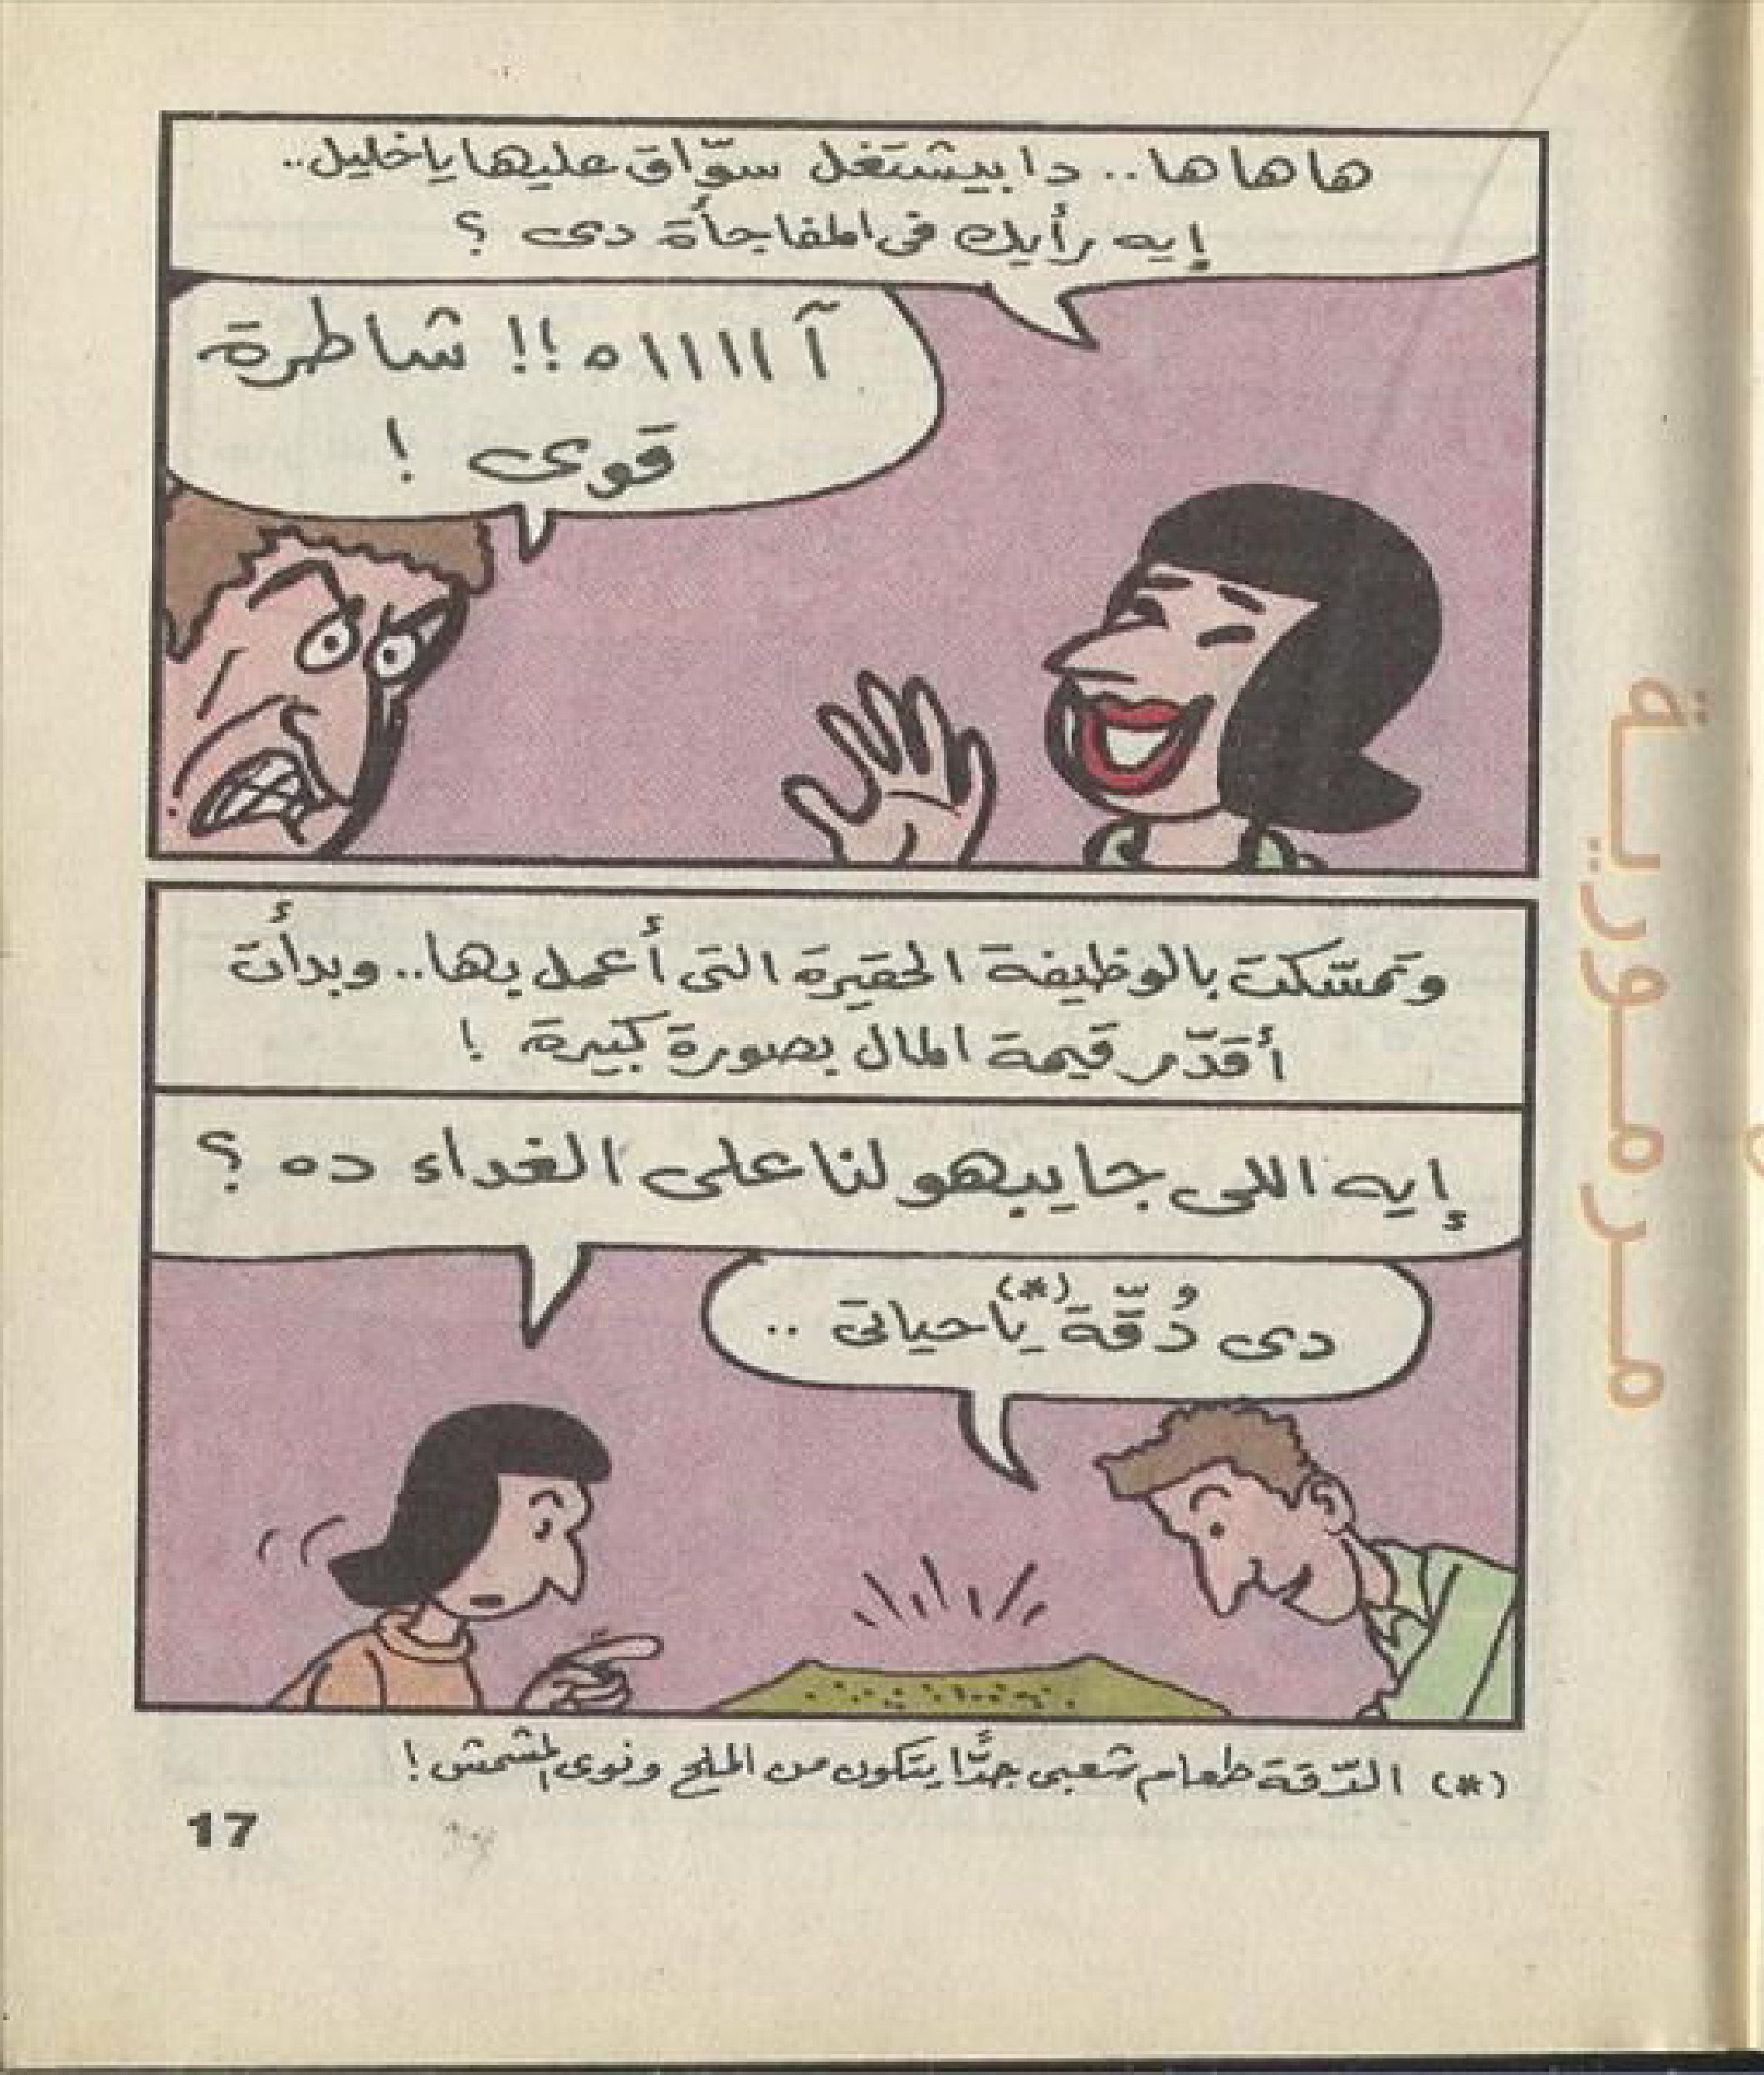 هاهاها.. دا بيشتغل سوّاق عليها يا خليل..
إيه رأيك فى المفاجأة دى ؟
آ ااااه!! شاطرة
قوى !
وتمسّكت بالوظيفة الحقيرة التى أعمل بها.. وبدأت
أقدّر قيمة المال بصورة كبيرة !
إيه اللى جايبهولنا على الغداء ده ؟
دى دُقَّة (*) يا حياتى ..
(*) الدّقة طعام شعبى جدًّا يتكون من الملح ونوى المشمش !
17
مرمورية